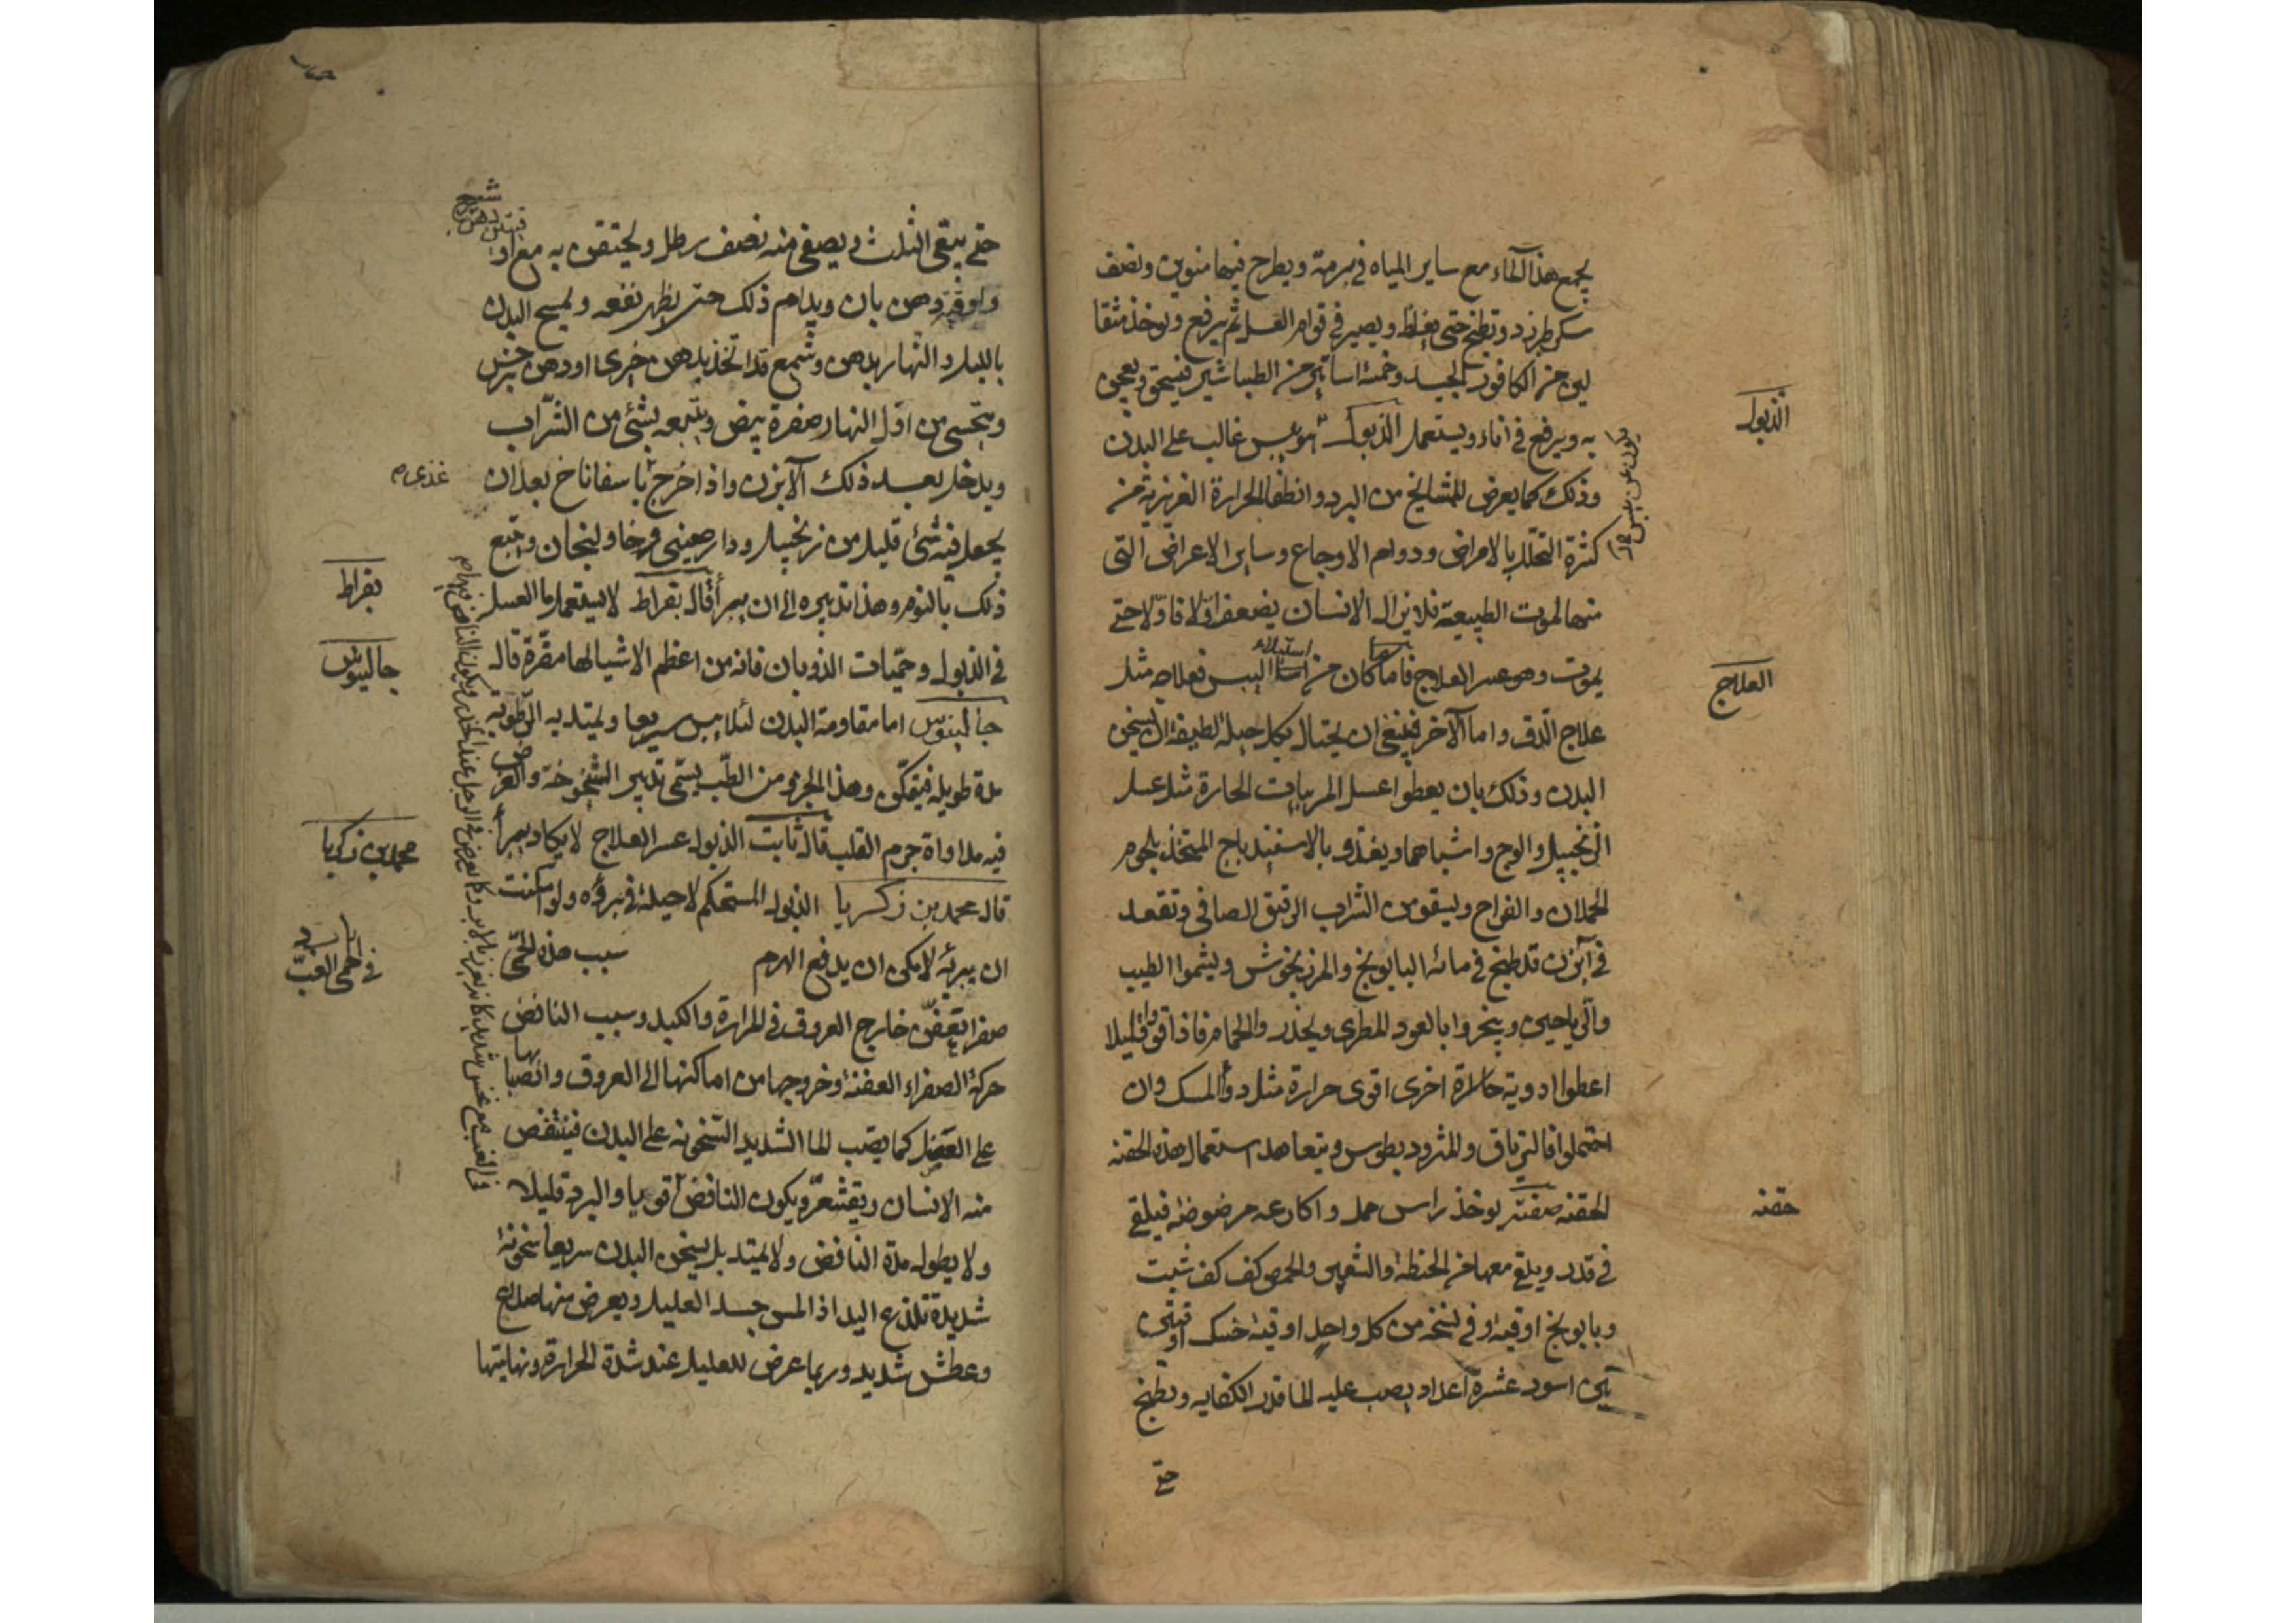 يجمع هذا الماء مع ساير المياه في برمة ويطرح فيها منوين ونصف
سكر طبرزد وتطبخ حتى يغلظ ويصير في قوام العسل ثم يرفع ويوخذ مثقا
لين من الكافور الجيد وخمسة اساتير من الطباشير فيسحق ويعجن
به ويرفع في اناء ويستعمل الذبول هو يبس غالب على البدن
الذبول
وذلك كما يعرض للمشايخ من البرد وانطفا الحرارة الغريزية من
كثرة التحلل بالامراض ودوام الاوجاع وساير الاعراض التى
منها الموت الطبيعية فلا يزال الانسان يضعف اولا فاولا حتى
يموت وهو عسر العلاج فاما ما كان من استيلاء اليبس فعلاجه مثل
العلاج
علاج الدق واما الآخر فينبغي ان يحتال بكل حيلة لطيفة ان يسخن
البدن وذلك بان يعطوا عسل المربيات الحارة مثل عسل
الزنجبيل والوج واشباهما ويغذو بالاسفيدباج المتخذ بلحوم
الحملان والفراخ وليسقو من الشراب الرقيق الصافي وتقعد
في آبزن قد طبخ في مائه البابونج والمرزنجوش وليشموا الطيب
والرياحين ويبخروا بالعود المطرى وليحذر والحمام فاذا قووا قليلا
اعطوا ادوية حارة اخرى اقوى حرارة مثل دوأ المسك وان
احتملوا فالترياق والمثروديطوس ويتعاهد استعمال هذه الحقنه
الحقنه صفته يوخذ راس حمل واكارعه مرضوضه فيلقى
حقنه
في قدر ويلقى معها من الحنطة والشعير والحمص كف كف شبت
وبابونج اوقية وفي نسخه من كل واحد اوقية خسك اوقيتين
تين اسود عشرة اعداد يصب عليه الما قدر الكفايه ويطبخ
حتى
حتى يبقى الثلث ويصفى منه نصف رطل ويحتقن به مع او
قيتين دهن شيرج
واوقية دهن بان ويدام ذلك حتى يظهر نفعه ويمسح البدن
بالليل والنهار بدهن وشمع قد اتخذ بدهن خيرى او دهن نرجس
ويتحسى من اول النهار صفرة بيض ويتبعه بشئ من الشراب
ويدخل بعد ذلك الآبزن واذا خرج باسفاناخ بعد ان
غذى
يجعل فيه شئ قليل من زنجبيل ودارصينى وخاولنجان ويتبع
ذلك بالنوم وهذا تدبيره الى ان يبرأ قال بقراط لا يستعمل ما العسل
بقراط
في الذبول وحميات الذوبان فانه من اعظم الاشيا لها مضرة قال
جالينوس
جالينوس اما مقاومة البدن لئلا ييبس سريعا ويمتد به الرطوبة
مدة طويلة فيتمكن وهذا الجزو من الطب يسمى تدبير الشيخوخة والغرض
فيه مداواة جرم القلب قال ثابت الذبول عسر العلاج لا يكاد يبرأ
محمد بن زكريا
قال محمد بن زكريا الذبول المستحكم لا حيلة في برؤه ولو امكنت
ان يبرئه لامكن ان يدفع الهرم سبب هذه الحمى
في حمى الغب
صفرا تعفن خارج العروق في المرارة والكبد وسبب النافض
حركة الصفراء العفنة وخروجها من اماكنها الى العروق وانصبابها
على العضل كما يصب الما الشديد السخونه على البدن فينتفض
منه الانسان ويقشعر ويكون النافض قويا والبرد قليلا
ولا يطول مدة النافض ولا يمتد بل يسخن البدن سريعا سخونة
شديدة تلذع اليد اذا لمس جسد العليل ويعرض منها صداع
وعطش شديد وربما عرض للعليل عند شدة الحرارة ونهايتها